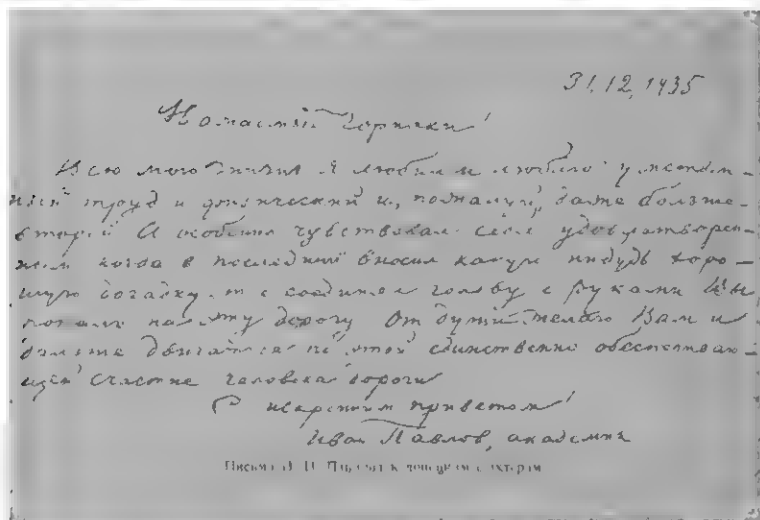 31.12.1935
Уважаемые горняки!
Всю мою жизнь я любил и люблю умствен-
ный труд и физический и, пожалуй, даже больше
второй А особенно чувствовал себя удовлетворен-
ным когда в последний вносил какую нибудь хоро-
шую догадку, т е соединял голову с руками Вы
попали на эту дорогу От души желаю Вам и
дальше двигаться по этой единственно обеспечиваю-
щей счастие человека дороге
С искренним приветом!
Иван Павлов, академик
Письмо И. П. Павлова к донецким шахтерам